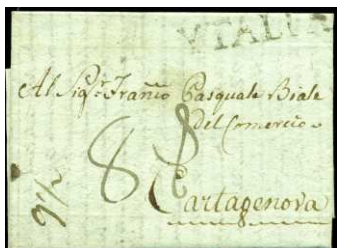 YTALIA
Al Sigr. Franco Pasquale Biale
Del Comercio
8
Cartagenova
9 1/2